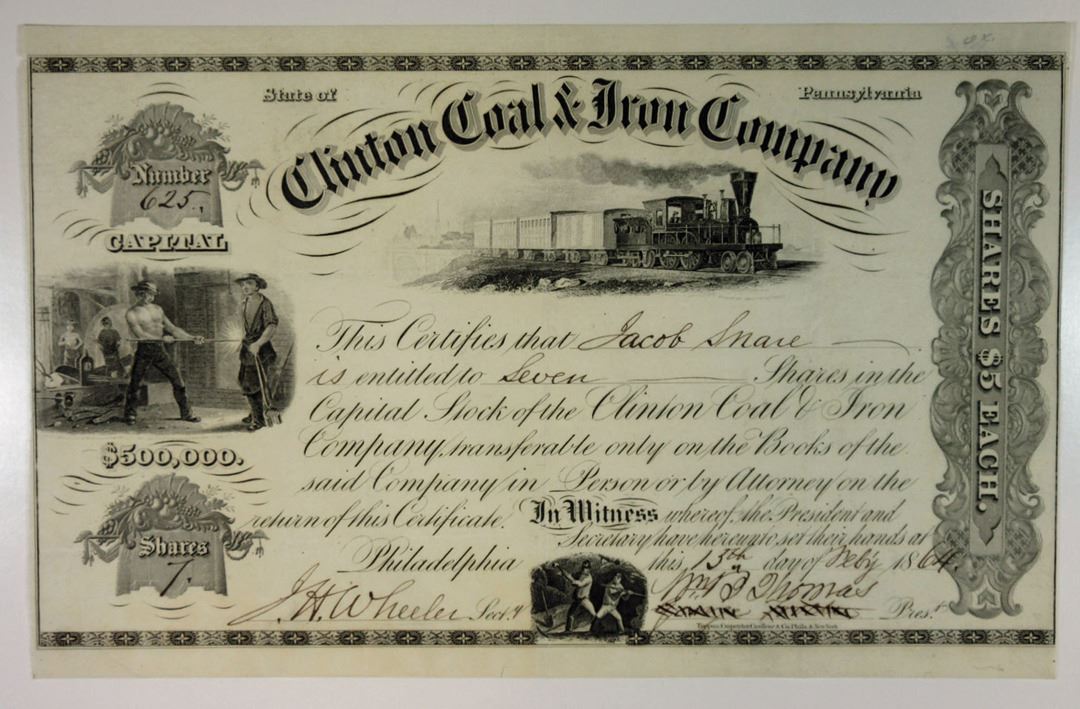 State of Pennsylvania
Clinton Coal & Iron Company
Number
625.
CAPITAL
$500,000.
Shares
7.
This Certifies that Jacob Snare
is entitled to Seven Shares in the
Capital Stock of the Clinton Coal & Iron
Company, transferable only on the Books of the
said Company in Person or by Attorney on the
return of this Certificate. In Witness whereof, the President and
Secretary have hereunto set their hands at
Philadelphia this, 13th day of Feb'y 1864.
J. H. Wheeler Sect.y Wm. B Thomas Pres.t
SHARES $5 EACH.